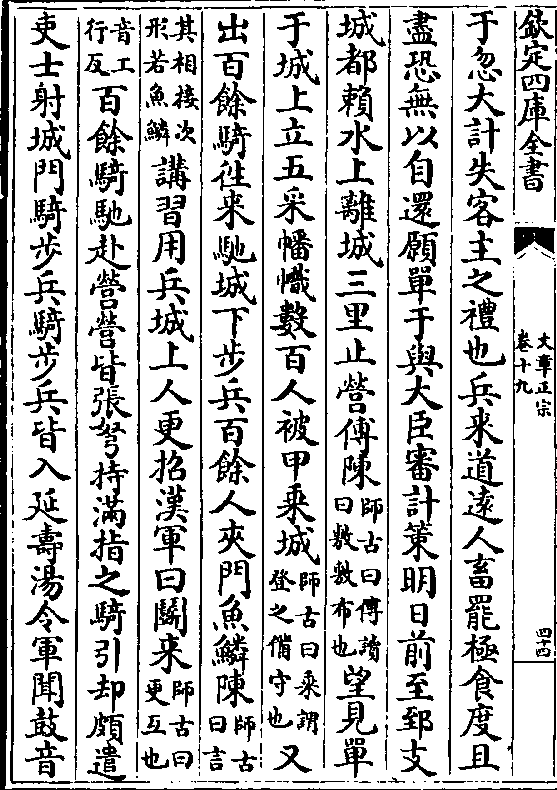 欽定四庫全書
文章正宗
卷十九
四十四
于忽大計失客主之禮也兵来道逺人畜罷極食度且
盡恐無以自還願單于與大臣審計策明日前至郅支
城都賴水上離城三里止營傅陳師古曰傅讀曰敷敷布也望見單
于城上立五采幡幟數百人被甲乗城師古曰乗謂登之備守也又
出百餘騎徃来馳城下步兵百餘人夾門魚鱗陳師古曰言
其相接次形若魚鱗講習用兵城上人更招漢軍曰鬭来師古曰更互也
音工行反百餘騎馳赴營營皆張弩持滿指之騎引却頗遣
吏士射城門騎步兵騎步兵皆入延壽湯令軍聞鼓音